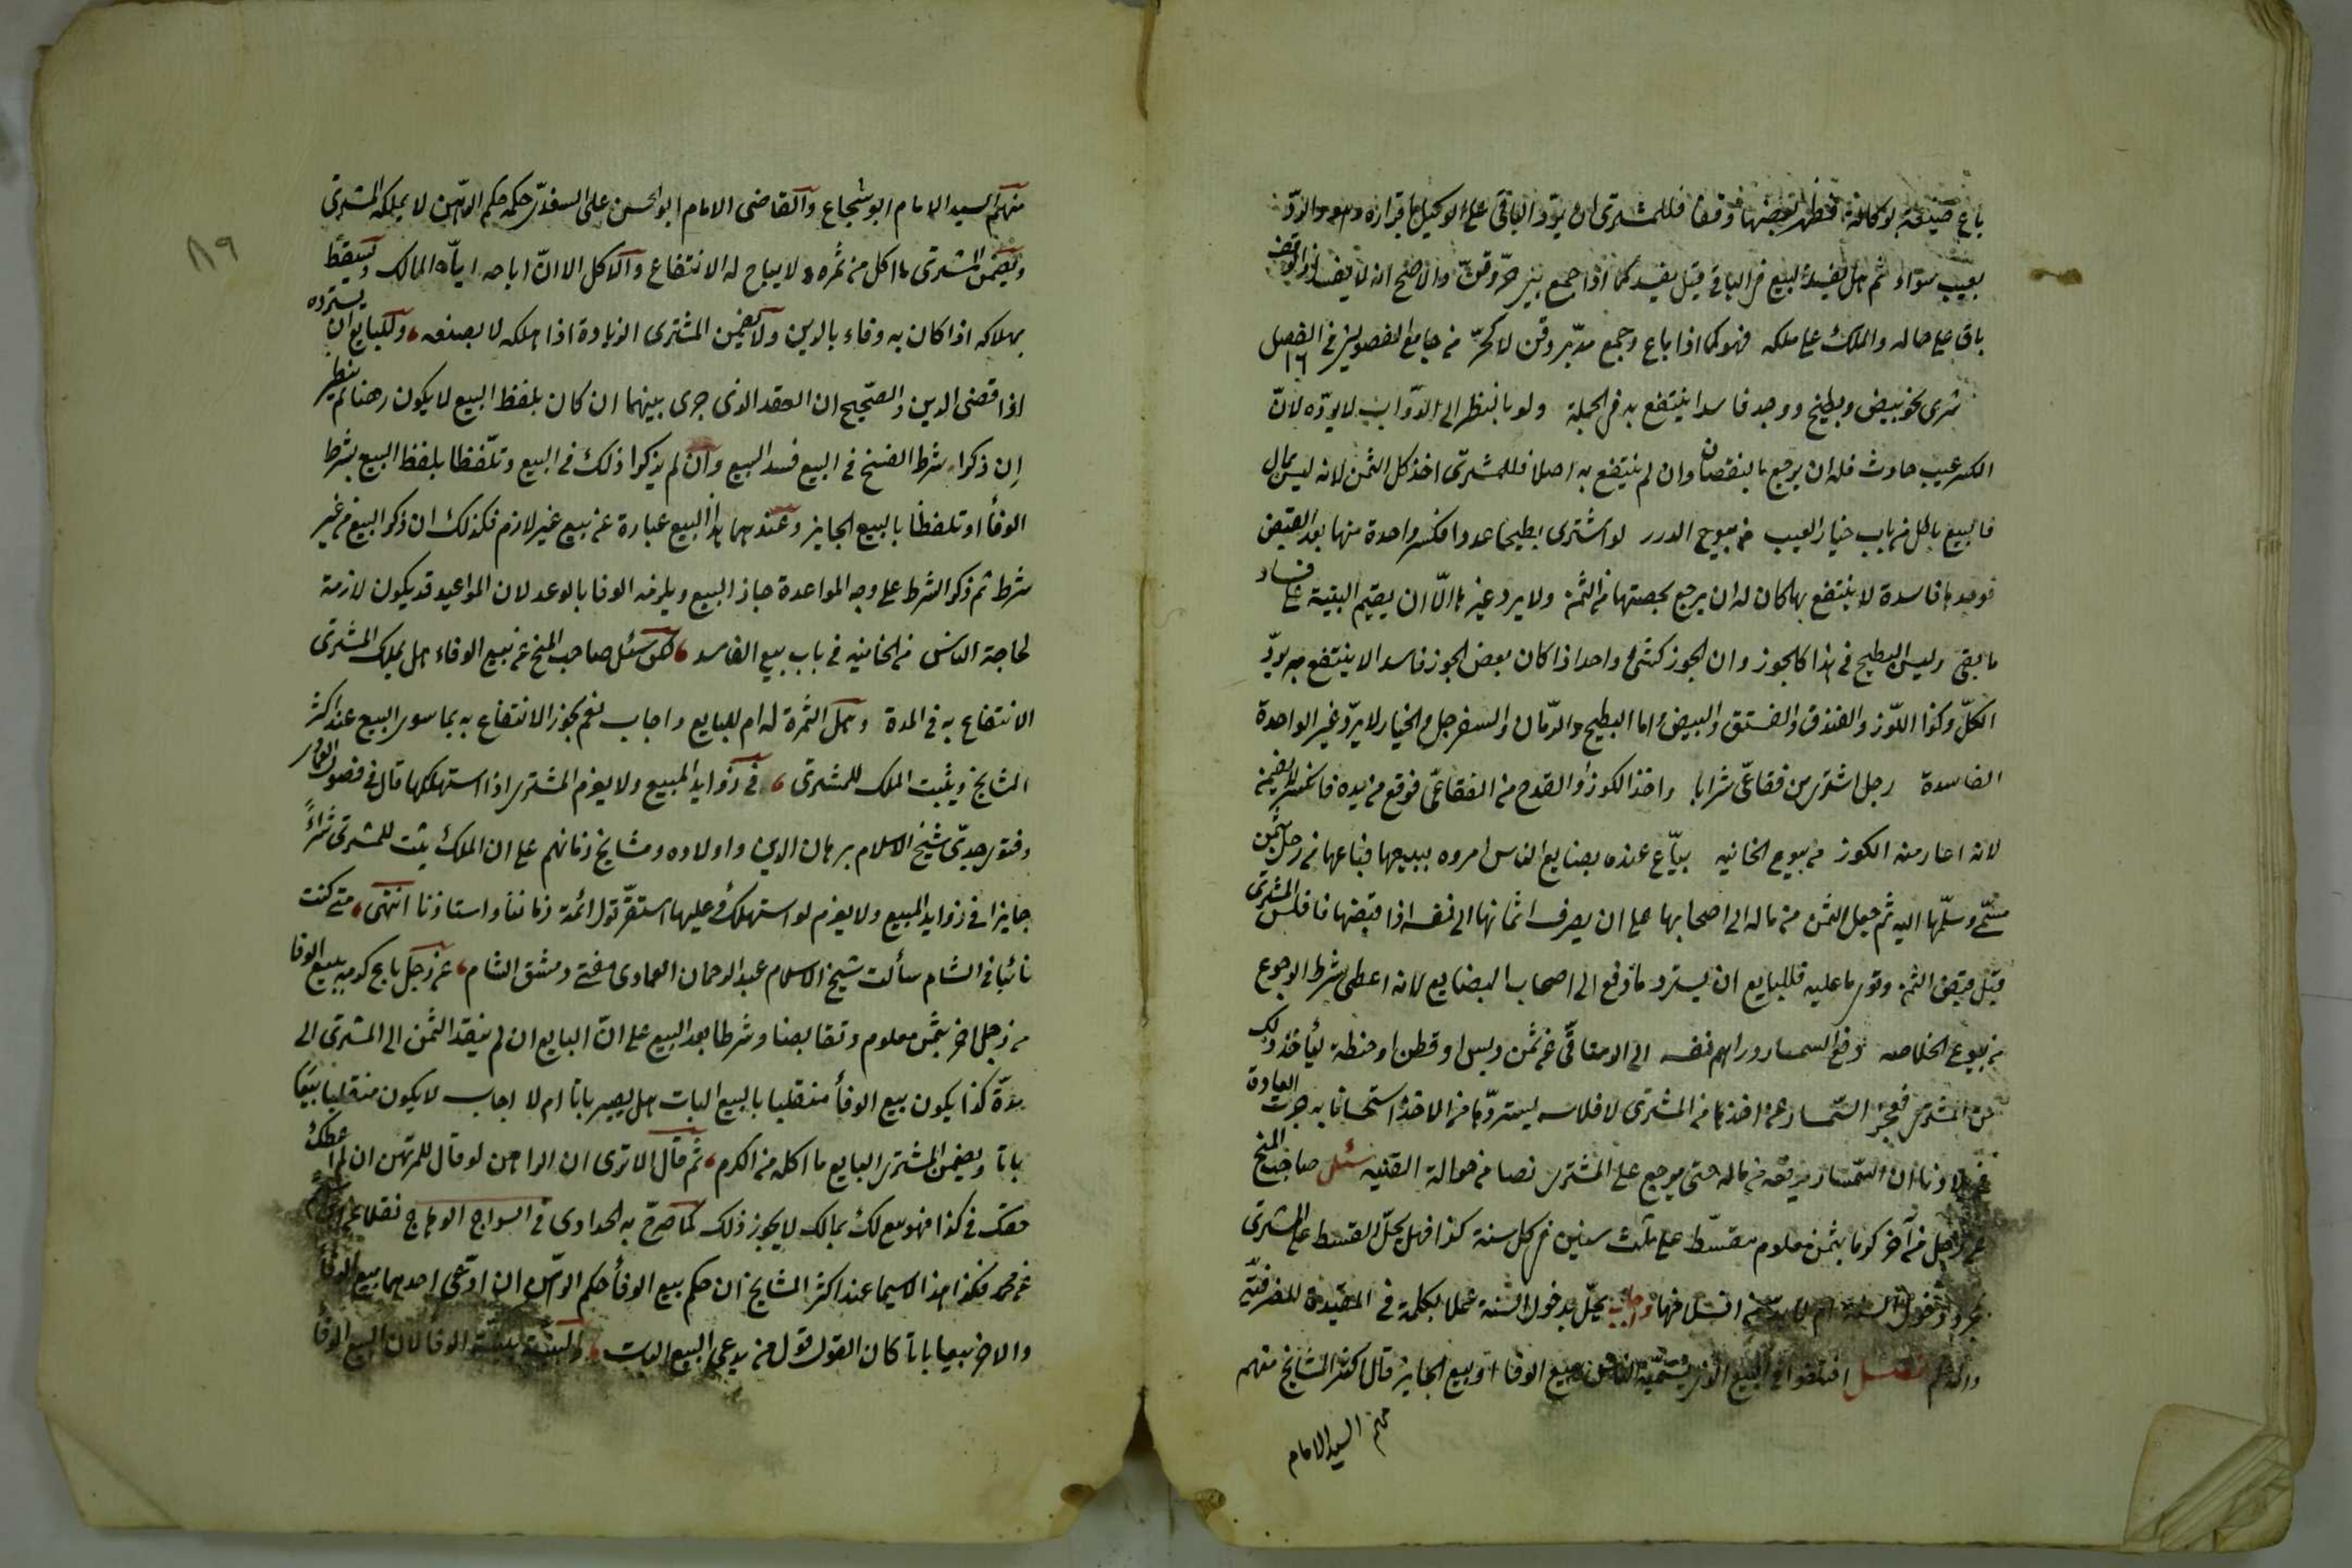 باع ضيعة بوكالة فظهر بعضها وقفا فللمشترى ان يردّ الباقى على الوكيل باقراره والردّ
بعيب سواء ثم هل يفسد البيع فى الباقى قيل يفسد كما اذا جمع بين حرّ وقنّ والاصح انه لا يفسد اذ الوقف
باق على حاله والملك على ملكه فهو كما اذا باع وجمع مدبّر وقن لا كحرّ من جامع الفصولين فى الفصل ١٦
شرى نحو بيض وبطيخ ووجد فاسدا ينتفع به فى الجملة ولو بالنظر الى الدوّاب لا يردّه لانّ
الكسر عيب حادث فله ان يرجع بالنقصان وان لم ينتفع به اصلا فللمشترى اخذ كل الثمن لانه ليس بمال
فالبيع باطل من باب خيار العيب من بيوع الدرر لو اشترى بطيخا عددا فكسر واحدة منها بعد القبض
فوجدها فاسدة لا ينتفع بها كان له ان يرجع بحصتها من الثمن ولا يرد غيرها الّا ان يقيم البينة على فساد
ما بقى وليس البطيخ فى هذا كالجوز وان الجوز كشئ واحد اذا كان بعض الجوز فاسدا لا ينتفع به يردّ
الكلّ وكذا اللّوز والفندق والفستق والبيض واما البطيخ والرّمان والسفرجل والخيار لا يردّ غير الواحدة
الفاسدة رجل اشترى من فقاعىّ شرابا واخذ الكوز او القدح من الفقاعىّ فوقع من يده فانكسر لا يضمن
لانه اعار منه الكوز من بيوع الخانيه بيّاع عنده بضايع الناس امروه ببيعها فباعها من رجل بثمن
مسمّى وسلّمها اليه ثم جعل الثمن من ماله الى اصحابها على ان يصرف اثمانها الى نفسه اذا قبضها فافلس المشترى
قبل قبض الثمن وتوى ما عليه فللبايع ان يسترد ما دفع الى اصحاب البضايع لانه اعطى بشرط الرجوع
من بيوع الخلاصه دفع السمسار دراهم نفسه الى الرستاقىّ عن ثمن دبس او قطن او حنطة ليأخذ ذلك
من المشترى فعجز السّمسار عن اخذها من المشترى لافلاسه يستردّها من الاخذ استحسانا به جرت العادة
فى بلادنا ان السّمسار يدفعه من ماله حتى يرجع على المشترى نصا من حوالة القنيه سئل صاحب المنح
عن رجل من آخر كرما بثمن معلوم مقسّط على ثلث سنين فى كل سنة كذا فهل يحلّ القسط على المشترى
بمجرد دخول السنة ام لا بد من انسلاخها واجاب يحلّ بدخول السنة عملا بكلمة فى المفيدة للظرفيّة
والله اعلم فصل اختلفوا فى البيع الذى يسمّيه الناس بيع الوفا او بيع الجايز قال اكثر المشايخ منهم
منهم السيد الامام
٨٩
منهم السيد الامام ابو شجاع والقاضى الامام ابو الحسن على السغدىّ حكمه حكم الرهن لا يملكه المشترى
ويضمن المشترى ما اكل من ثمره ولا يباح له الانتفاع والاكل الا انّ اباحه ايّاه المالك ويسقط
بهلاكه اذا كان به وفاء بالدين ولا يضمن المشترى الزيادة اذا هلكه لا بصنعه وللبايع ان يسترده
اذا قضى الدين والصّحيح ان العقد الذى جرى بينهما ان كان بلفظ البيع لا يكون رهنا ثم ينظر
اِن ذكرا شرط الفسخ فى البيع فسد البيع وان لم يذكرا ذلك فى البيع وتلّفظا بلفظ البيع بشرط
الوفأ او تلفظا بالبيع الجايز وعندهما هذا البيع عبارة عن بيع غير لازم فكذلك ان ذكر البيع من غير
شرط ثم ذكر الشرط على وجه المواعدة جاز البيع ويلزمه الوفا بالوعد لان المواعيد قد يكون لازمة
لحاجة الناس من الخانيه فى باب بيع الفاسد سئل صاحب المنح عن بيع الوفاء هل يملك المشترى
الانتفاع به فى المدة وهل الثمرة له ام للبايع واجاب نعم يجوز الانتفاع به بما سوى البيع عند اكثر
المشايخ ويثبت الملك للمشترى فى زوايد المبيع ولا يغرم المشترى اذا استهلكها قال فى فصول العمادى
وفتوى جدىّ شيخ الاسلام برهان الدين واولاده ومشايخ زمانهم على ان الملك يثبت للمشترى شراءً
جايزا فى زوايد المبيع ولا يغرم لو استهلك وعليها استقرّ قول ائمة زماننا واستاذنا انتهى متى كنت
نائبا فى الشام سألت شيخ الاسلام عبد الرحمان العمادى مفتى دمشق الشام عن رجل باع كرمه ببيع الوفا
من رجل اخر بثمن معلوم وتقابضا وشرطا بعد البيع على انّ البايع ان لم ينقد الثمن الى المشترى الى
مدّة كذا يكون بيع الوفأ منقلبا بالبيع البات هل يصير باتا ام لا اجاب لا يكون منقلبا بيعا
باتا ويضمن المشترى البايع ما اكله من الكرم ثم قال الا ترى ان الراهن لو قال للمرتهن ان لم اعطك
حقك فى كذا فهو بيع لك بمالك لا يجوز ذلك كما صرّح به الحدادى فى السراج الوهاج نقلا
عن محمد فكذا هذا لا سيما عند اكثر المشايخ ان حكم بيع الوفأ حكم الرهن ان ادّعى احدهما بيع الوفا
والاخر بيعا باتا كان القول قول من يدعى البيع البات والبيّنة بيّنة الوفا لان البيع الوفا